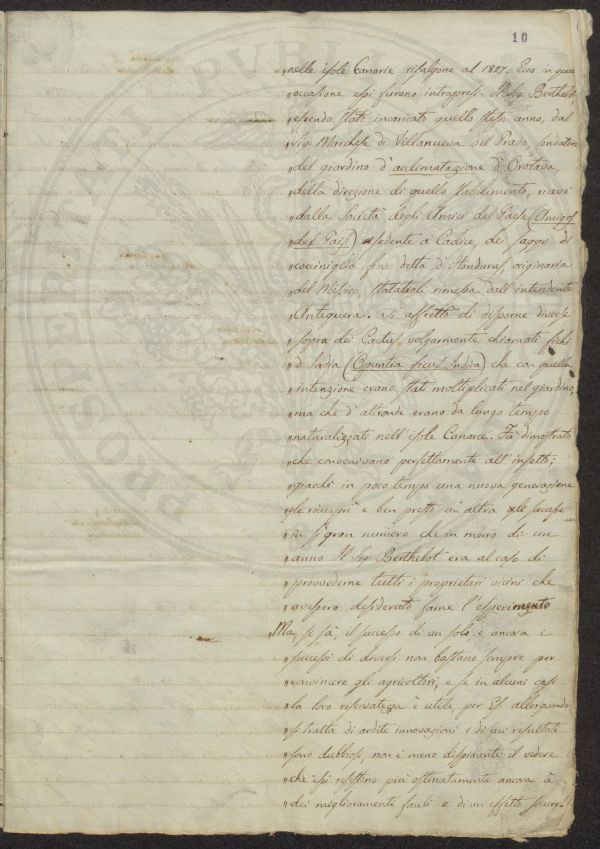 10
"nelle isole Canarie risalgono al 1827. Ecco in qua
"occasione essi furono intrapresi. Il Sig. Berthelot,
"essendo stato incaricato quello stesso anno, dal
"Sig. Marchese di Villanueva del Prado, fondatore
"del giardino d'acclimatazione d'Orotava,
"della direzione di quello stabilimento, ricevé
"dalla Società degli Amici del Paese (Amigos
"des Pais) sedente à Cadice, dei saggi di
"cocciniglia fina detta d'Honduras, originaria
"del Messico, statagli rimessa dall'intendente
"Antequera. Si affrettò di disporne diverse
"sopra dei Cactus volgarmente chiamati fichi
"d'India (Opuntia ficus Indica) che con quella
"intenzione erano stati moltiplicati nel giardino,
"ma che d'altronde erano da lungo tempo
"naturalizzati nell'isole Canarie. Fù dimostrato
"che convenivano perfettamente all'insetto;
"giacchè in poco tempo una nuova generazione
"gli ricoprì e ben presto un'altra le successe
"in sì gran numero che in meno di un
"anno Il Sig. Berthelot era al caso di
"provvederne tutti i proprietari vicini che
"avessero desiderato farne l'esperimento
"Ma, si sà, il successo di un solo, e ancora i
"successi di diversi non bastano sempre per
"convincere gli agricoltori, e se in alcuni casi
"la loro riservatezza è utile, per Es. allorquando
"si tratta di ardite innovazioni i di cui resultati
"sono dubbiosi, non è meno dispiacente il vedere
"che essi resistono più ostinatamente ancora à
"dei miglioramenti facili e di un effetto sicuro.